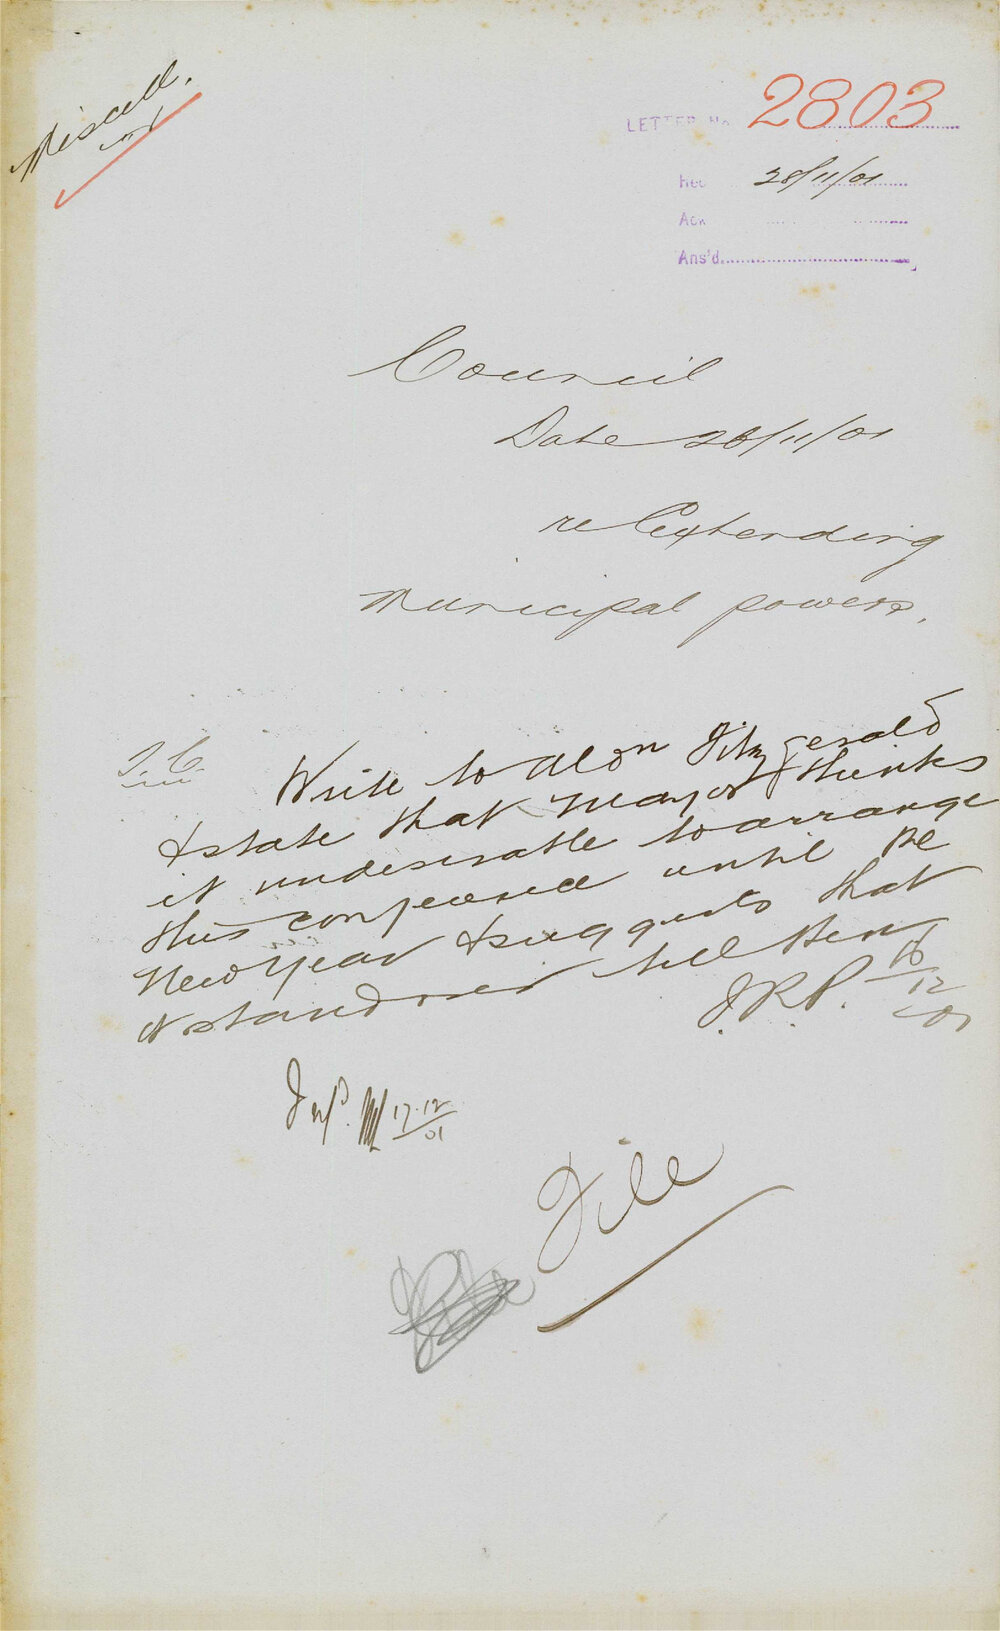 Miscell.
LETTER No. 2803
Rec 28/11/01
Ack
Ans'd
Council
Date 28/11/01
re Extending
Municipal powers.
T.C. Write to Aldn Fitzgerald
& state that Mayor thinks
it undesirable to arrange
this conference until the
New Year & suggests that
it stand over till then
J.R.P. 16/12/01
17.12/01
File